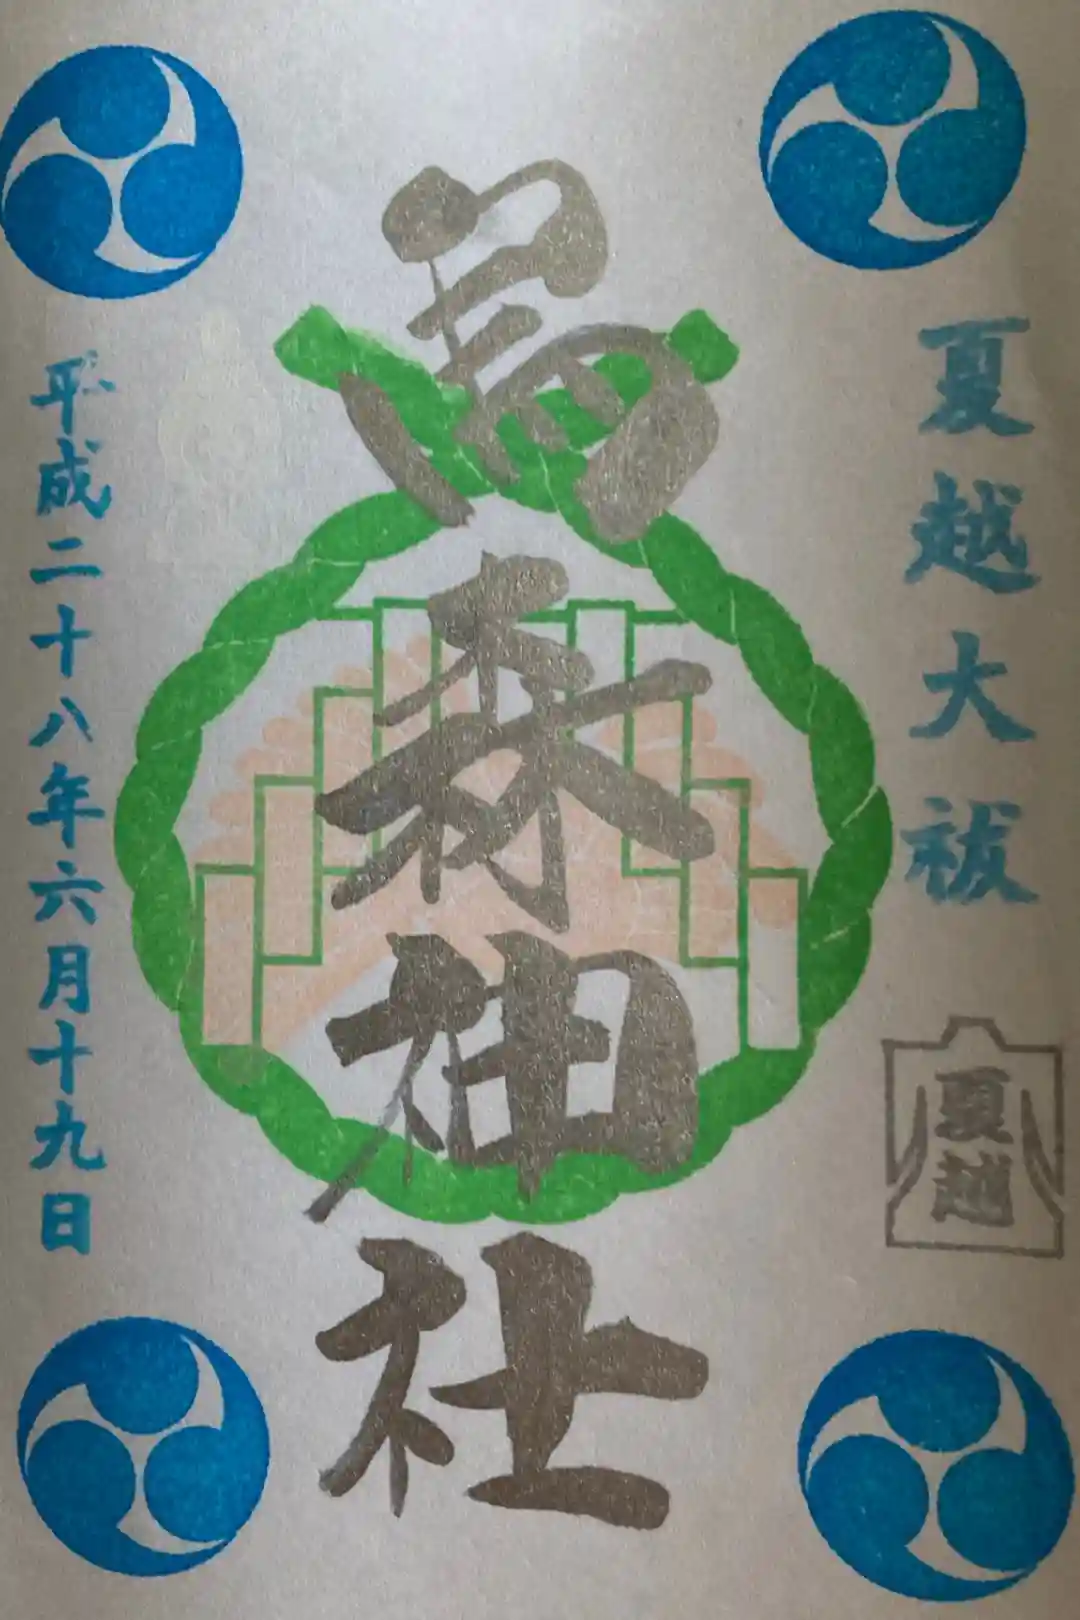 夏越大祓
夏越
烏森神社
平成二十八年六月十九日